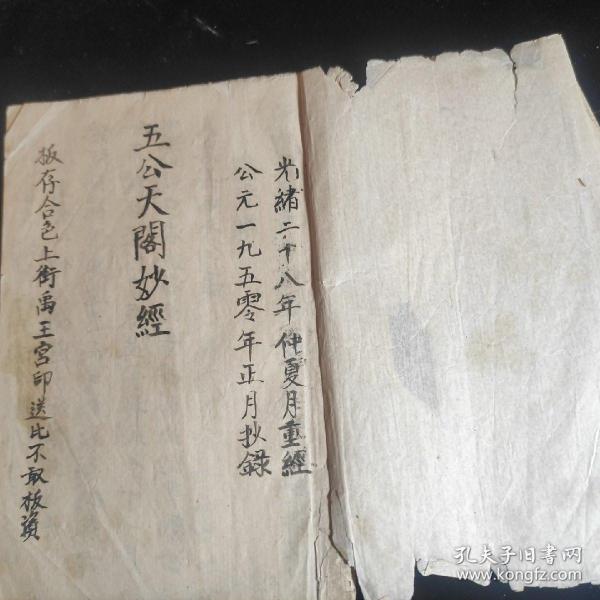 光緒二十八年仲夏月重經
公元一九五零年正月抄錄
五公天閣妙經
板存合邑上街禹王宮印送比不取板資
孔夫子旧书网
www.kongfz.com